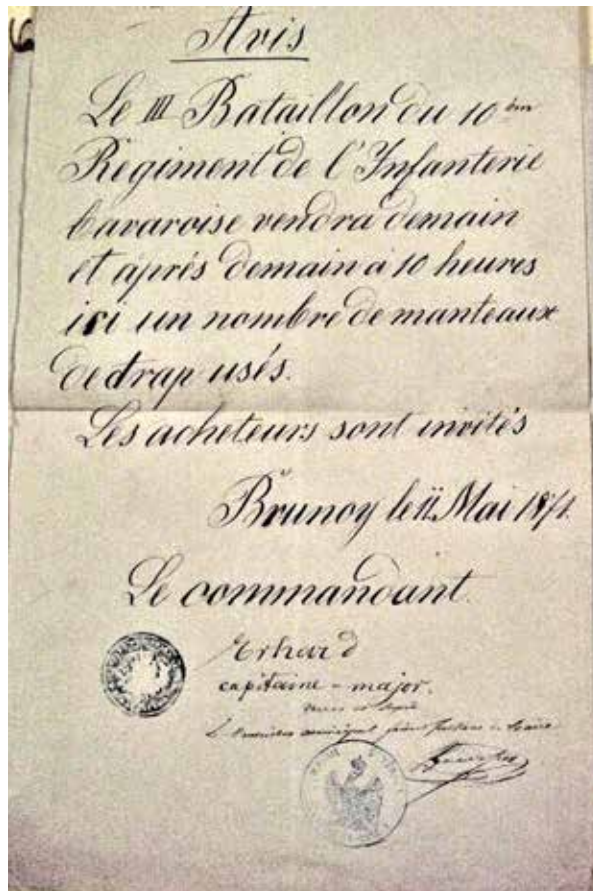 Avis
Le III Bataillon du 10èm
Regiment de l'Infanterie
bavaroise vendra demain
et après demain à 10 heures
ici un nombre de manteaux
de drap usés.
Les acheteurs sont invités
Brunoy le 11. Mai 1871.
Le commandant
Erhard
capitaine-major.